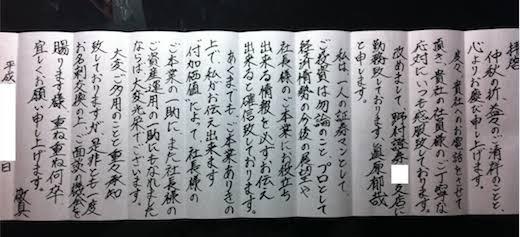 拝啓
仲秋の折、益々のご清祥のことと、
心よりお慶び申し上げます。
度々、貴社へのお電話をさせて
頂き、貴社の社員様のご丁寧な
応対に、いつも感服致しております。
改めまして、野村證券 支店に
勤務致しております、眞原郁哉
と申します。
私は、一人の証券マンとして、
ご投資は勿論のこと、プロとして
経済情勢の今後の展望や
社長様のご本業にお役立ち
出来る情報を必ずお伝え
出来ると確信致しております。
あくまでも、ご本業ありきの
上で、私がお伝え出来ます
付加価値によって、社長様の
ご本業の一助に、また社長様の
ご資産運用の一助にもなれました
ならば、大変光栄でございます。
大変ご多用のことと重々承知
致しておりますが、是非とも一度
お名刺交換の上、ご面談の機会を
賜ります様、重ね重ね何卒
宜しくお願い申し上げます。
敬具
平成 日